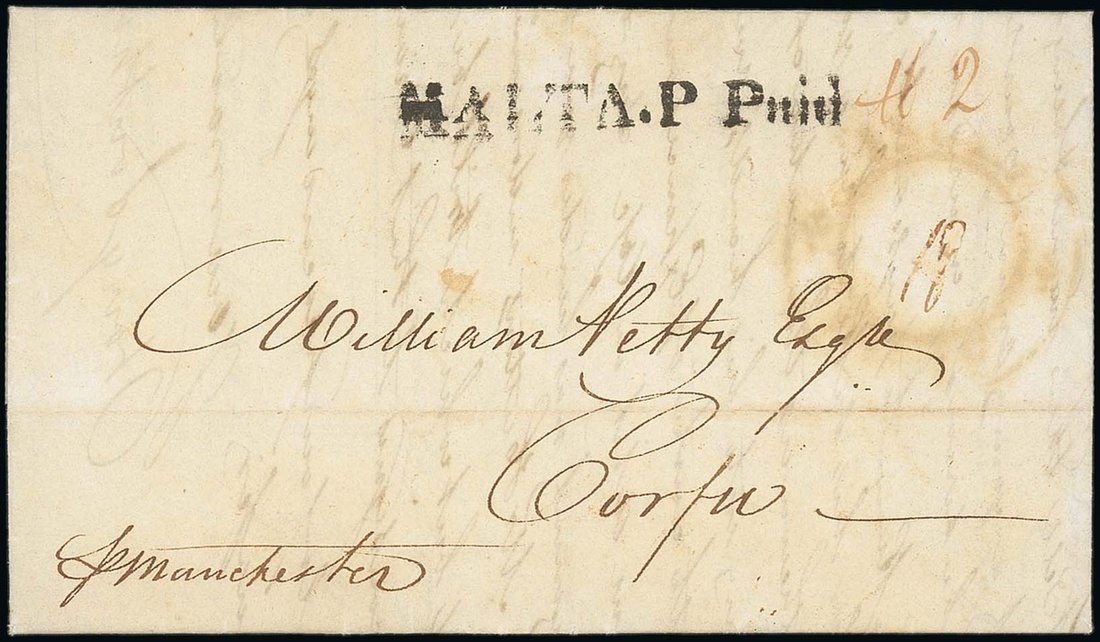 MALTA.P Paid
2
William Petty Esqre
Corfu
p Manchester